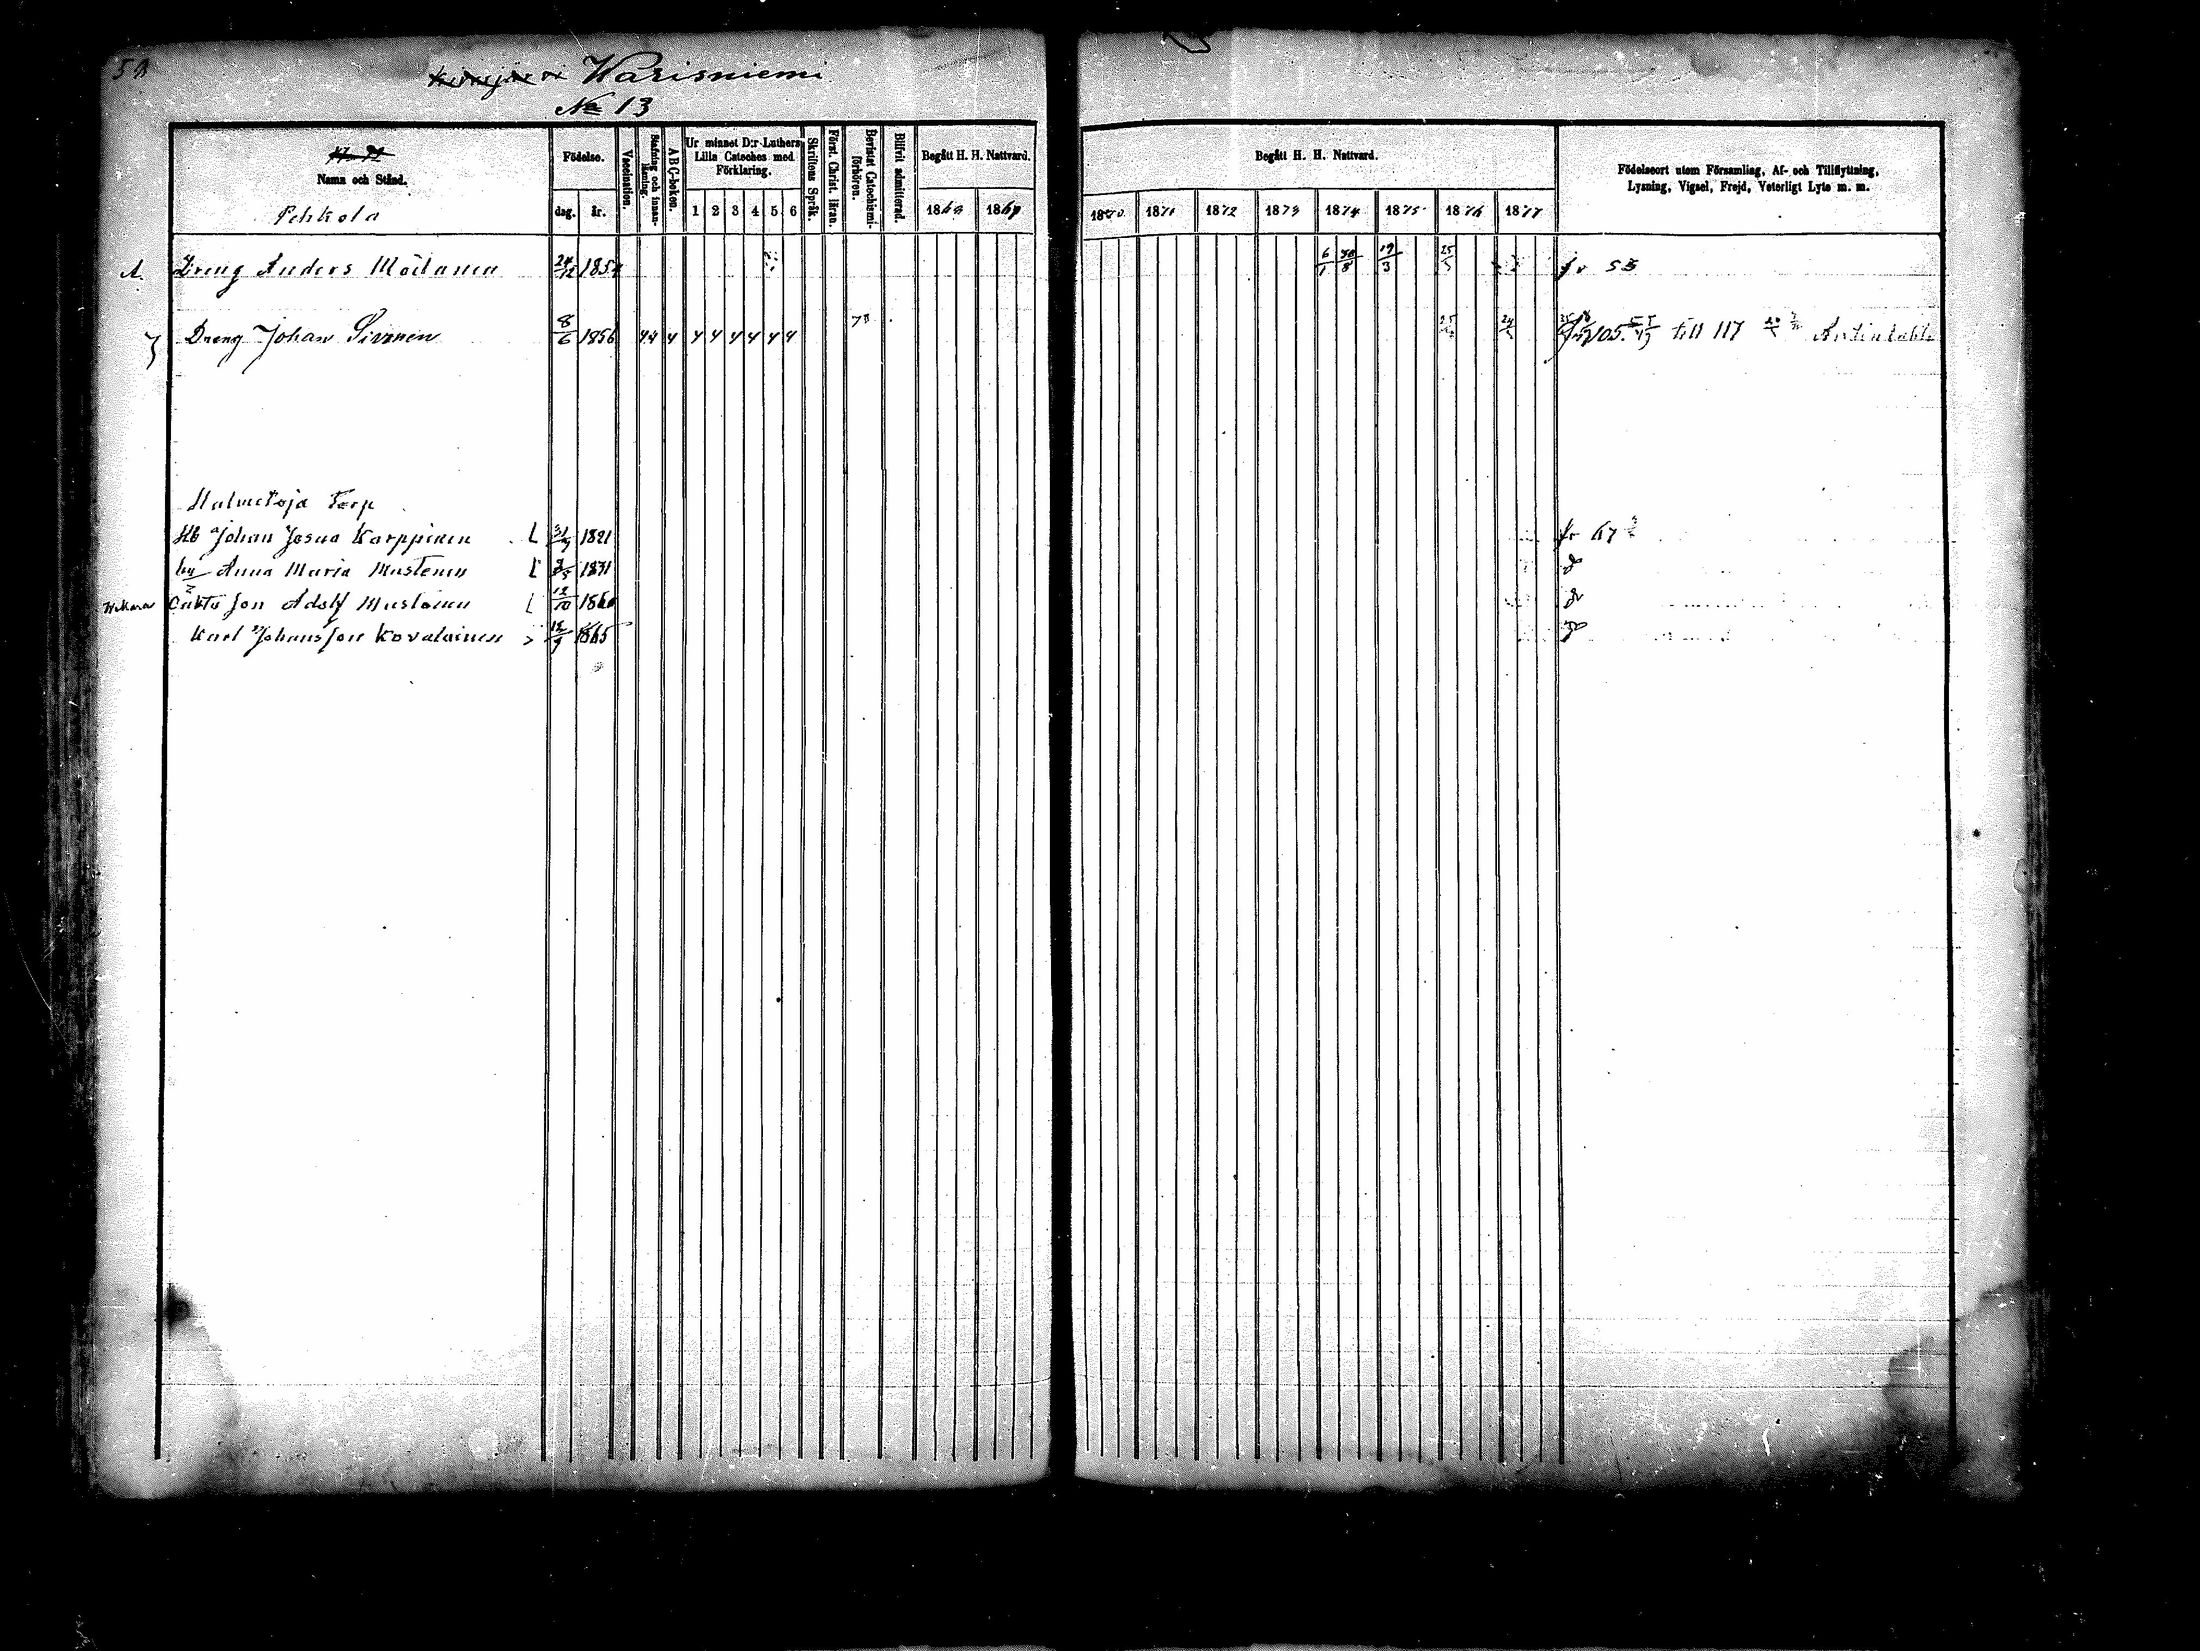 Warisniemi
No 13
Namn och Stånd.
Födelse.
dag. år.
Vaccination.
Stafning och innanläsning.
A B C-boken.
Ur minnet D:r Luthers Lilla Cateches med Förklaring.
1 2 3 4 5 6
Skriftens Språk.
Först. Christ. läran.
Bevistat Catechismi-förhören.
Blifvit admitterad.
Begått H. H. Nattvard.
1868 1869
Begått H. H. Nattvard.
1870 1871 1872 1873 1874 1875 1876 1877
Födelseort utom Församling, Af- och Tillflyttning,
Lysning, Vigsel, Frejd, Veterligt Lyte m. m.
Pehkola
Dreng Anders Möilanen 24/12 185 6/1 30/8 19/3 25/5 fr 53
Dreng Johan Sivonen 8/6 1856 4 4 4 4 4 4 4 4 4 105 till 117
Halmetoja Torp
Johan Josua Karppinen 31/7 1821 fr 67
hu Anna Maria Mustonen 1831
Son Adolf Mustonen 12/10 1860
Karl Johansson Kovalainen 1865